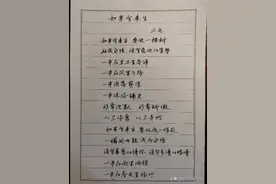 如果有来生
三毛
如果有来生 要做一棵树
站成永恒 没有悲欢的姿势
一半在尘土里安详
一半在风里飞扬
一半洒落阴凉
一半沐浴阳光
非常沉默 非常骄傲
从不依靠 从不寻找
如果有来生 要化成一阵风
一瞬间也能 成为永恒
没有善感的情怀 没有多情的眼睛
一半在雨里洒脱
一半在春光里旅行